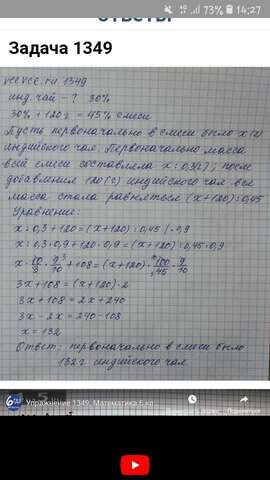 14:27
73%
ОТВЕТЫ
Задача 1349
vcevce.ru 1349
инд. чай - ? 30%
30% + 120 г = 45% смеси
Пусть первоначально в смеси было x (г)
индийского чая. Первоначально масса
всей смеси составляла x : 0,3 (г); после
добавления 120 (г) индийского чая вся
масса стала равняться (x + 120) : 0,45
Уравнение:
x : 0,3 + 120 = (x + 120) : 0,45 / · 0,9
x : 0,3 · 0,9 + 120 · 0,9 = (x + 120) : 0,45 · 0,9
3x + 108 = (x + 120) · 2
3x + 108 = 2x + 240
3x - 2x = 240 - 108
x = 132
Ответ: первоначально в смеси было
132 г индийского чая.
Упражнение 1349. Математика 6 кл